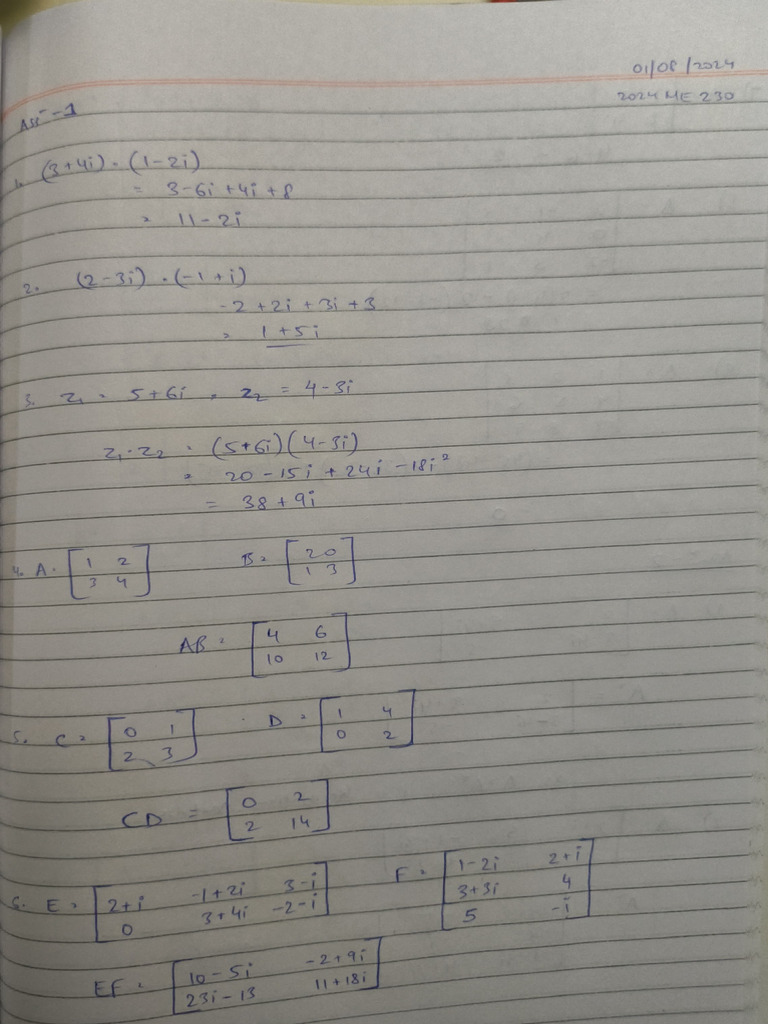 01/08/2024
2024 ME 230
Ass - 1
1. (3+4i) · (1-2i)
= 3-6i+4i+8
= 11-2i
2. (2-3i) · (-1+i)
-2+2i+3i+3
= 1+5i
3. z₁ = 5+6i , z₂ = 4-3i
z₁·z₂ = (5+6i)(4-3i)
= 20-15i+24i-18i²
= 38+9i
4. A = [1 2
3 4] B = [2 0
1 3]
AB = [4 6
10 12]
5. C = [0 1
2 3] D = [1 4
0 2]
CD = [0 2
2 14]
6. E = [2+i -1+2i 3-i
0 3+4i -2-i] F = [1-2i 2+i
3+3i 4
5 -i]
EF = [10-5i -2+9i
23i-13 11+18i]